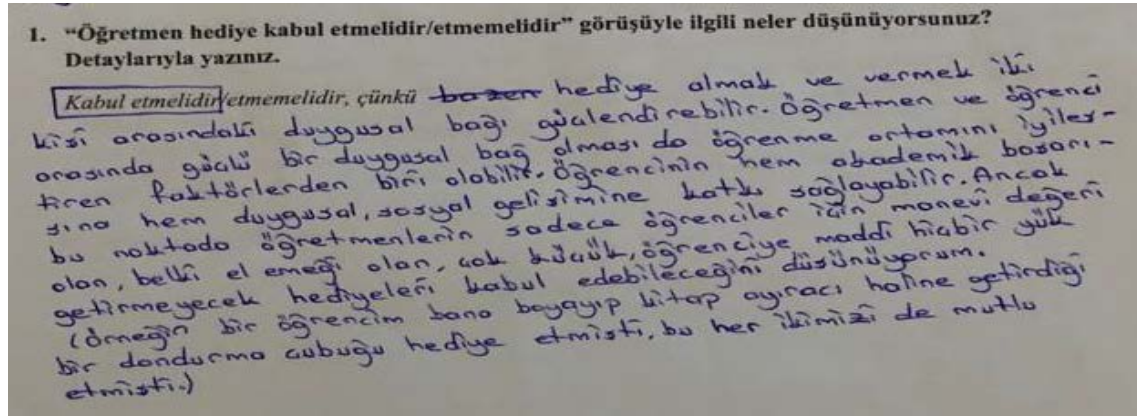 1. “Öğretmen hediye kabul etmelidir/etmemelidir” görüşüyle ilgili neler düşünüyorsunuz?
Detaylarıyla yazınız.
Kabul etmelidir/etmemelidir, çünkü bazen hediye almak ve vermek iki
kişi arasındaki duygusal bağı güçlendirebilir. Öğretmen ve öğrenci
arasında güçlü bir duygusal bağ olması da öğrenme ortamını iyileş-
tiren faktörlerden biri olabilir. Öğrencinin hem akademik başarı-
sına hem duygusal, sosyal gelişimine katkı sağlayabilir. Ancak
bu noktada öğretmenlerin sadece öğrenciler için manevi değeri
olan, belki el emeği olan, çok küçük, öğrenciye maddi hiçbir yük
getirmeyecek hediyeleri kabul edebileceğini düşünüyorum.
(Örneğin bir öğrencim bana boyayıp kitap ayıracı haline getirdiği
bir dondurma çubuğu hediye etmişti, bu her ikimizi de mutlu
etmişti.)